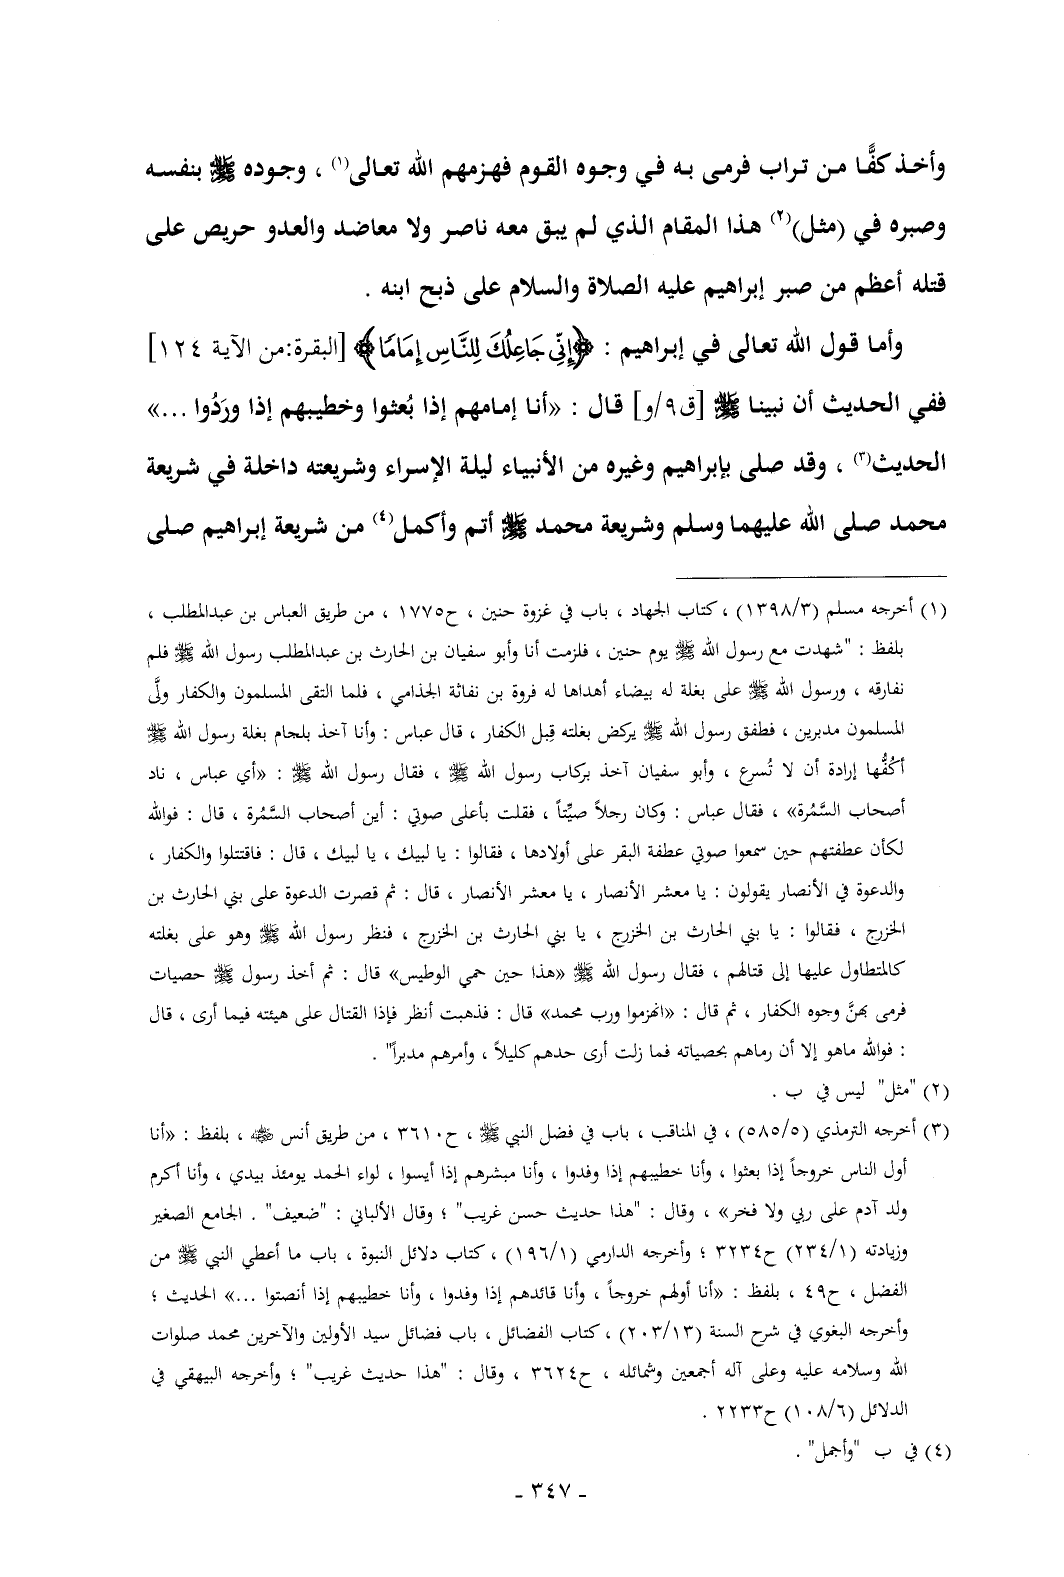 وأخذ كفًّا من تراب فرمى به في وجوه القوم فهزمهم الله تعالى(١) ، وجوده ﷺ بنفسه
وصبره في (مثل)(٢) هذا المقام الذي لم يبق معه ناصر ولا معاضد والعدو حريص على
قتله أعظم من صبر إبراهيم عليه الصلاة والسلام على ذبح ابنه .
وأما قول الله تعالى في إبراهيم : ﴿إِنِّي جَاعِلُكَ لِلنَّاسِ إِمَامًا﴾ [البقرة:من الآية ١٢٤]
ففي الحديث أن نبينا ﷺ [ق٩/و] قال : «أنا إمامهم إذا بُعثوا وخطيبهم إذا ورَدُوا ...»
الحديث(٣) ، وقد صلى بإبراهيم وغيره من الأنبياء ليلة الإسراء وشريعته داخلة في شريعة
محمد صلى الله عليهما وسلم وشريعة محمد ﷺ أتم وأكمل(٤) من شريعة إبراهيم صلى
(١) أخرجه مسلم (١٣٩٨/٣) ، كتاب الجهاد ، باب في غزوة حنين ، ح١٧٧٥ ، من طريق العباس بن عبدالمطلب ،
بلفظ : "شهدت مع رسول الله ﷺ يوم حنين ، فلزمت أنا وأبو سفيان بن الحارث بن عبدالمطلب رسول الله ﷺ فلم
نفارقه ، ورسول الله ﷺ على بغلة له بيضاء أهداها له فروة بن نفاثة الجذامي ، فلما التقى المسلمون والكفار ولَّى
المسلمون مدبرين ، فطفق رسول الله ﷺ يركض بغلته قِبل الكفار ، قال عباس : وأنا آخذ بلجام بغلة رسول الله ﷺ
أكُفُّها إرادة أن لا تُسرع ، وأبو سفيان آخذ بركاب رسول الله ﷺ ، فقال رسول الله ﷺ : «أي عباس ، ناد
أصحاب السَّمُرة» ، فقال عباس : وكان رجلاً صيِّتاً ، فقلت بأعلى صوتي : أين أصحاب السَّمُرة ، قال : فوالله
لكأن عطفتهم حين سمعوا صوتي عطفة البقر على أولادها ، فقالوا : يا لبيك ، يا لبيك ، قال : فاقتتلوا والكفار ،
والدعوة في الأنصار يقولون : يا معشر الأنصار ، يا معشر الأنصار ، قال : ثم قصرت الدعوة على بني الحارث بن
الخزرج ، فقالوا : يا بني الحارث بن الخزرج ، يا بني الحارث بن الخزرج ، فنظر رسول الله ﷺ وهو على بغلته
كالمتطاول عليها إلى قتالهم ، فقال رسول الله ﷺ «هذا حين حمي الوطيس» قال : ثم أخذ رسول ﷺ حصيات
فرمى بهنَّ وجوه الكفار ، ثم قال : «انهزموا ورب محمد» قال : فذهبت أنظر فإذا القتال على هيئته فيما أرى ، قال
: فوالله ماهو إلا أن رماهم بحصياته فما زلت أرى حدهم كليلاً ، وأمرهم مدبراً" .
(٢) "مثل" ليس في ب .
(٣) أخرجه الترمذي (٥٨٥/٥) ، في المناقب ، باب في فضل النبي ﷺ ، ح٣٦١٠ ، من طريق أنس ﷺ ، بلفظ : «أنا
أول الناس خروجاً إذا بعثوا ، وأنا خطيبهم إذا وفدوا ، وأنا مبشرهم إذا أيسوا ، لواء الحمد يومئذ بيدي ، وأنا أكرم
ولد آدم على ربي ولا فخر» ، وقال : "هذا حديث حسن غريب" ؛ وقال الألباني : "ضعيف" . الجامع الصغير
وزيادته (٢٣٤/١) ح٣٢٣٤ ؛ وأخرجه الدارمي (١٩٦/١) ، كتاب دلائل النبوة ، باب ما أعطي النبي ﷺ من
الفضل ، ح٤٩ ، بلفظ : «أنا أولهم خروجاً ، وأنا قائدهم إذا وفدوا ، وأنا خطيبهم إذا أنصتوا ...» الحديث ؛
وأخرجه البغوي في شرح السنة (٢٠٣/١٣) ، كتاب الفضائل ، باب فضائل سيد الأولين والآخرين محمد صلوات
الله وسلامه عليه وعلى آله أجمعين وشمائله ، ح٣٦٢٤ ، وقال : "هذا حديث غريب" ؛ وأخرجه البيهقي في
الدلائل (١٠٨/٦) ح٢٢٣٣ .
(٤) في ب "وأجمل" .
- ٣٤٧ -